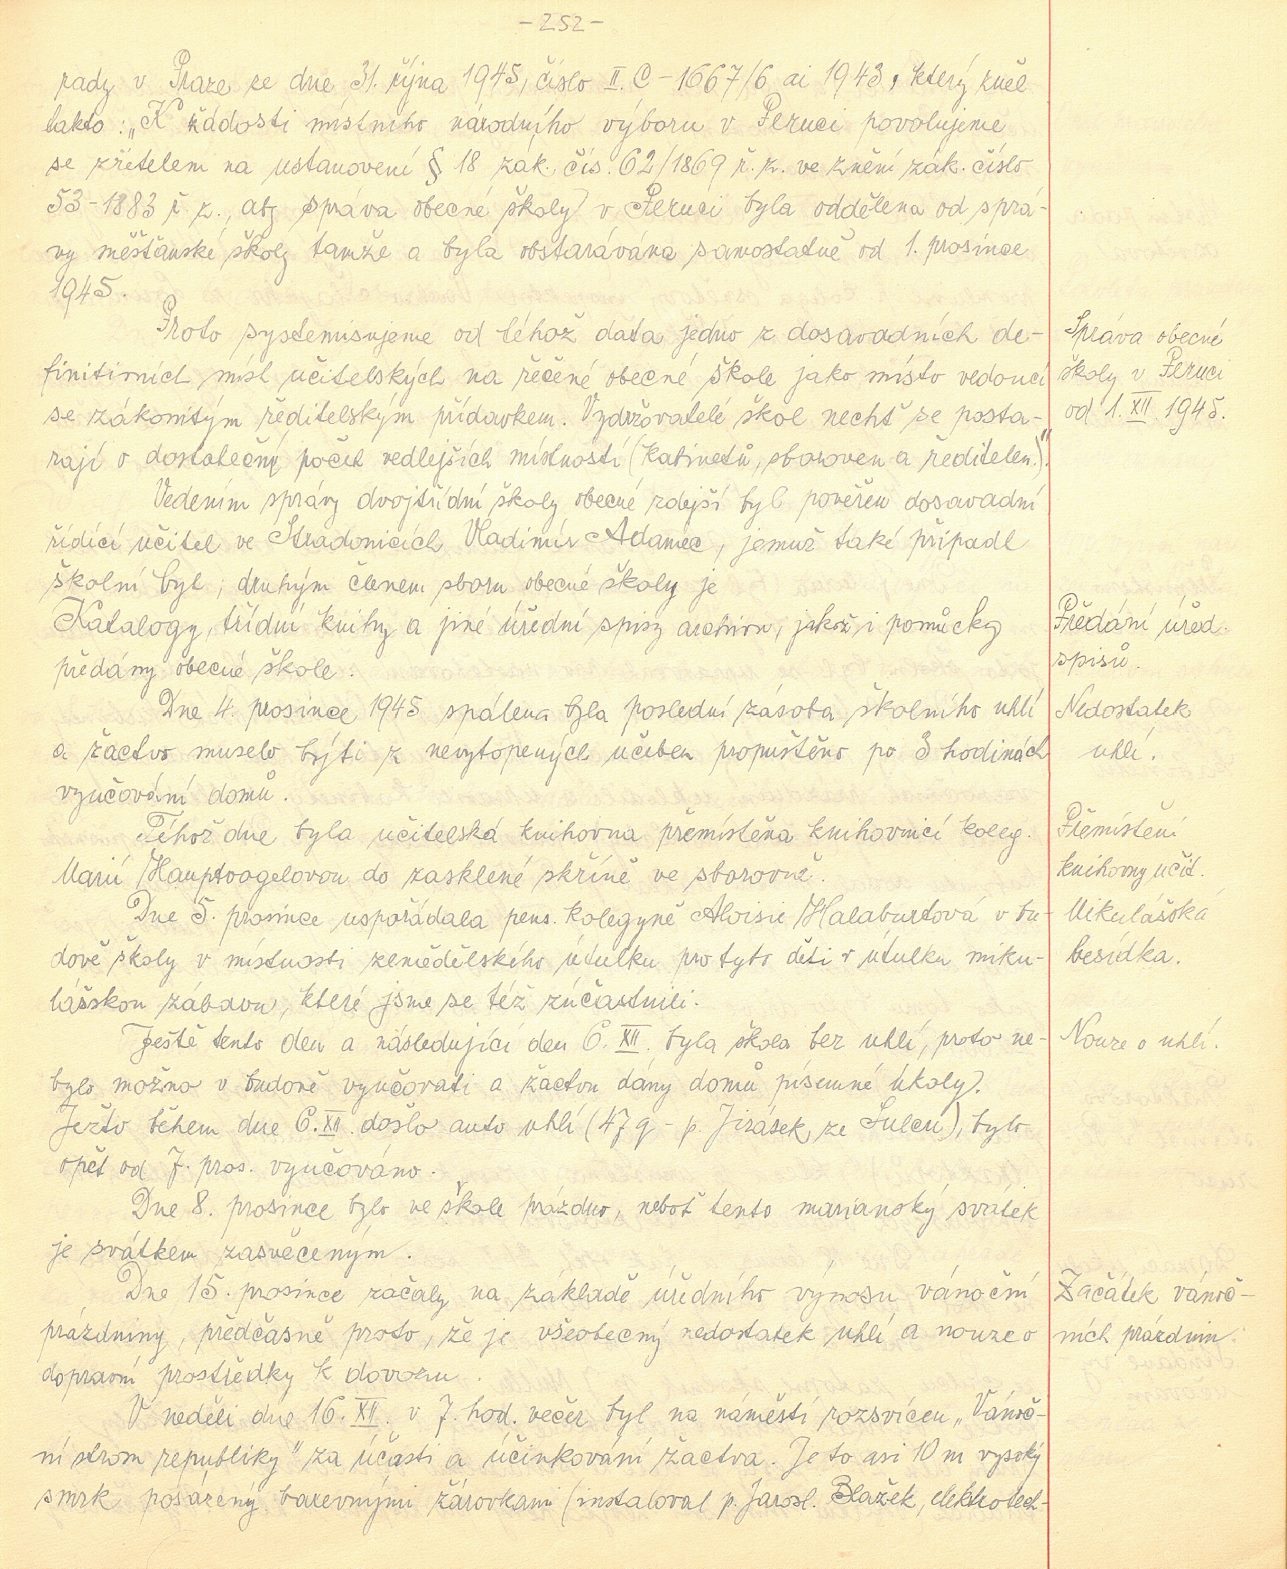 - 252 -
rady v Praze ze dne 31. října 1945, číslo II. C - 1667/6 ai 1943, který zněl
takto: „K žádosti místního národního výboru v Peruci povolujeme
se zřetelem na ustanovení § 18 zák. čís. 62/1869 ř. z. ve znění zák. číslo
53-1883 ř. z., aby správa obecné školy v Peruci byla oddělena od sprá-
vy měšťanské školy tamže a byla obstarávána samostatně od 1. prosince
1945.
Proto systemisujeme od téhož data jedno z dosavadních de-
finitivních míst učitelských na řečené obecné škole jako místo vedoucí
se zákonitým ředitelským přídavkem. Vydržovatelé škol nechť se posta-
rají o dostatečný počet vedlejších místností (kabinetů, sboroven a ředitelen.)"
Správa obecné
školy v Peruci
od 1. XII. 1945.
Vedením správy dvojtřídní školy obecné zdejší byl pověřen dosavadní
řídící učitel ve Stradonicích Vladimír Adamec, jemuž také připadl
školní byt; druhým členem sboru obecné školy je
Katalogy, třídní knihy a jiné úřední spisy archivu, jakož i pomůcky
předány obecné škole.
Předání úřed.
spisů.
Dne 4. prosince 1945 spálena byla poslední zásoba školního uhlí
a žactvo muselo býti z nevytopených učeben propuštěno po 3 hodinách
vyučování domů.
Nedostatek
uhlí.
Téhož dne byla učitelská knihovna přemístěna knihovnicí koleg.
Marií Hauptvogelovou do zasklené skříně ve sborovně.
Přemístění
knihovny učit.
Dne 5. prosince uspořádala pens. kolegyně Aloisie Halaburtová v bu-
dově školy v místnosti zemědělského útulku pro tyto děti v útulku miku-
lášskou zábavu, které jsme se též zúčastnili.
Mikulášská
besídka.
Ještě tento den a následující den 6. XII. byla škola bez uhlí, proto ne-
bylo možno v budově vyučovati a žactvu dány domů písemné úkoly.
Ježto během dne 6. XII. došlo auto uhlí (47 q - p. Jirásek, ze Sulce), bylo
opět od 7. pros. vyučováno.
Nouze o uhlí.
Dne 8. prosince bylo ve škole prázdno, neboť tento marianský svátek
je svátkem zasvěceným.
Dne 15. prosince začaly na základě úředního výnosu vánoční
prázdniny, předčasně proto, že je všeobecný nedostatek uhlí a nouze o
dopravní prostředky k dovozu.
Začátek vánoč-
ních prázdnin.
V neděli dne 16. XII. v 7. hod. večer byl na náměstí rozsvícen „Vánoč-
ní strom republiky" za účasti a účinkování žactva. Je to asi 10 m vysoký
smrk posázený barevnými žárovkami (instaloval p. Jarosl. Blažek, elektrotech-